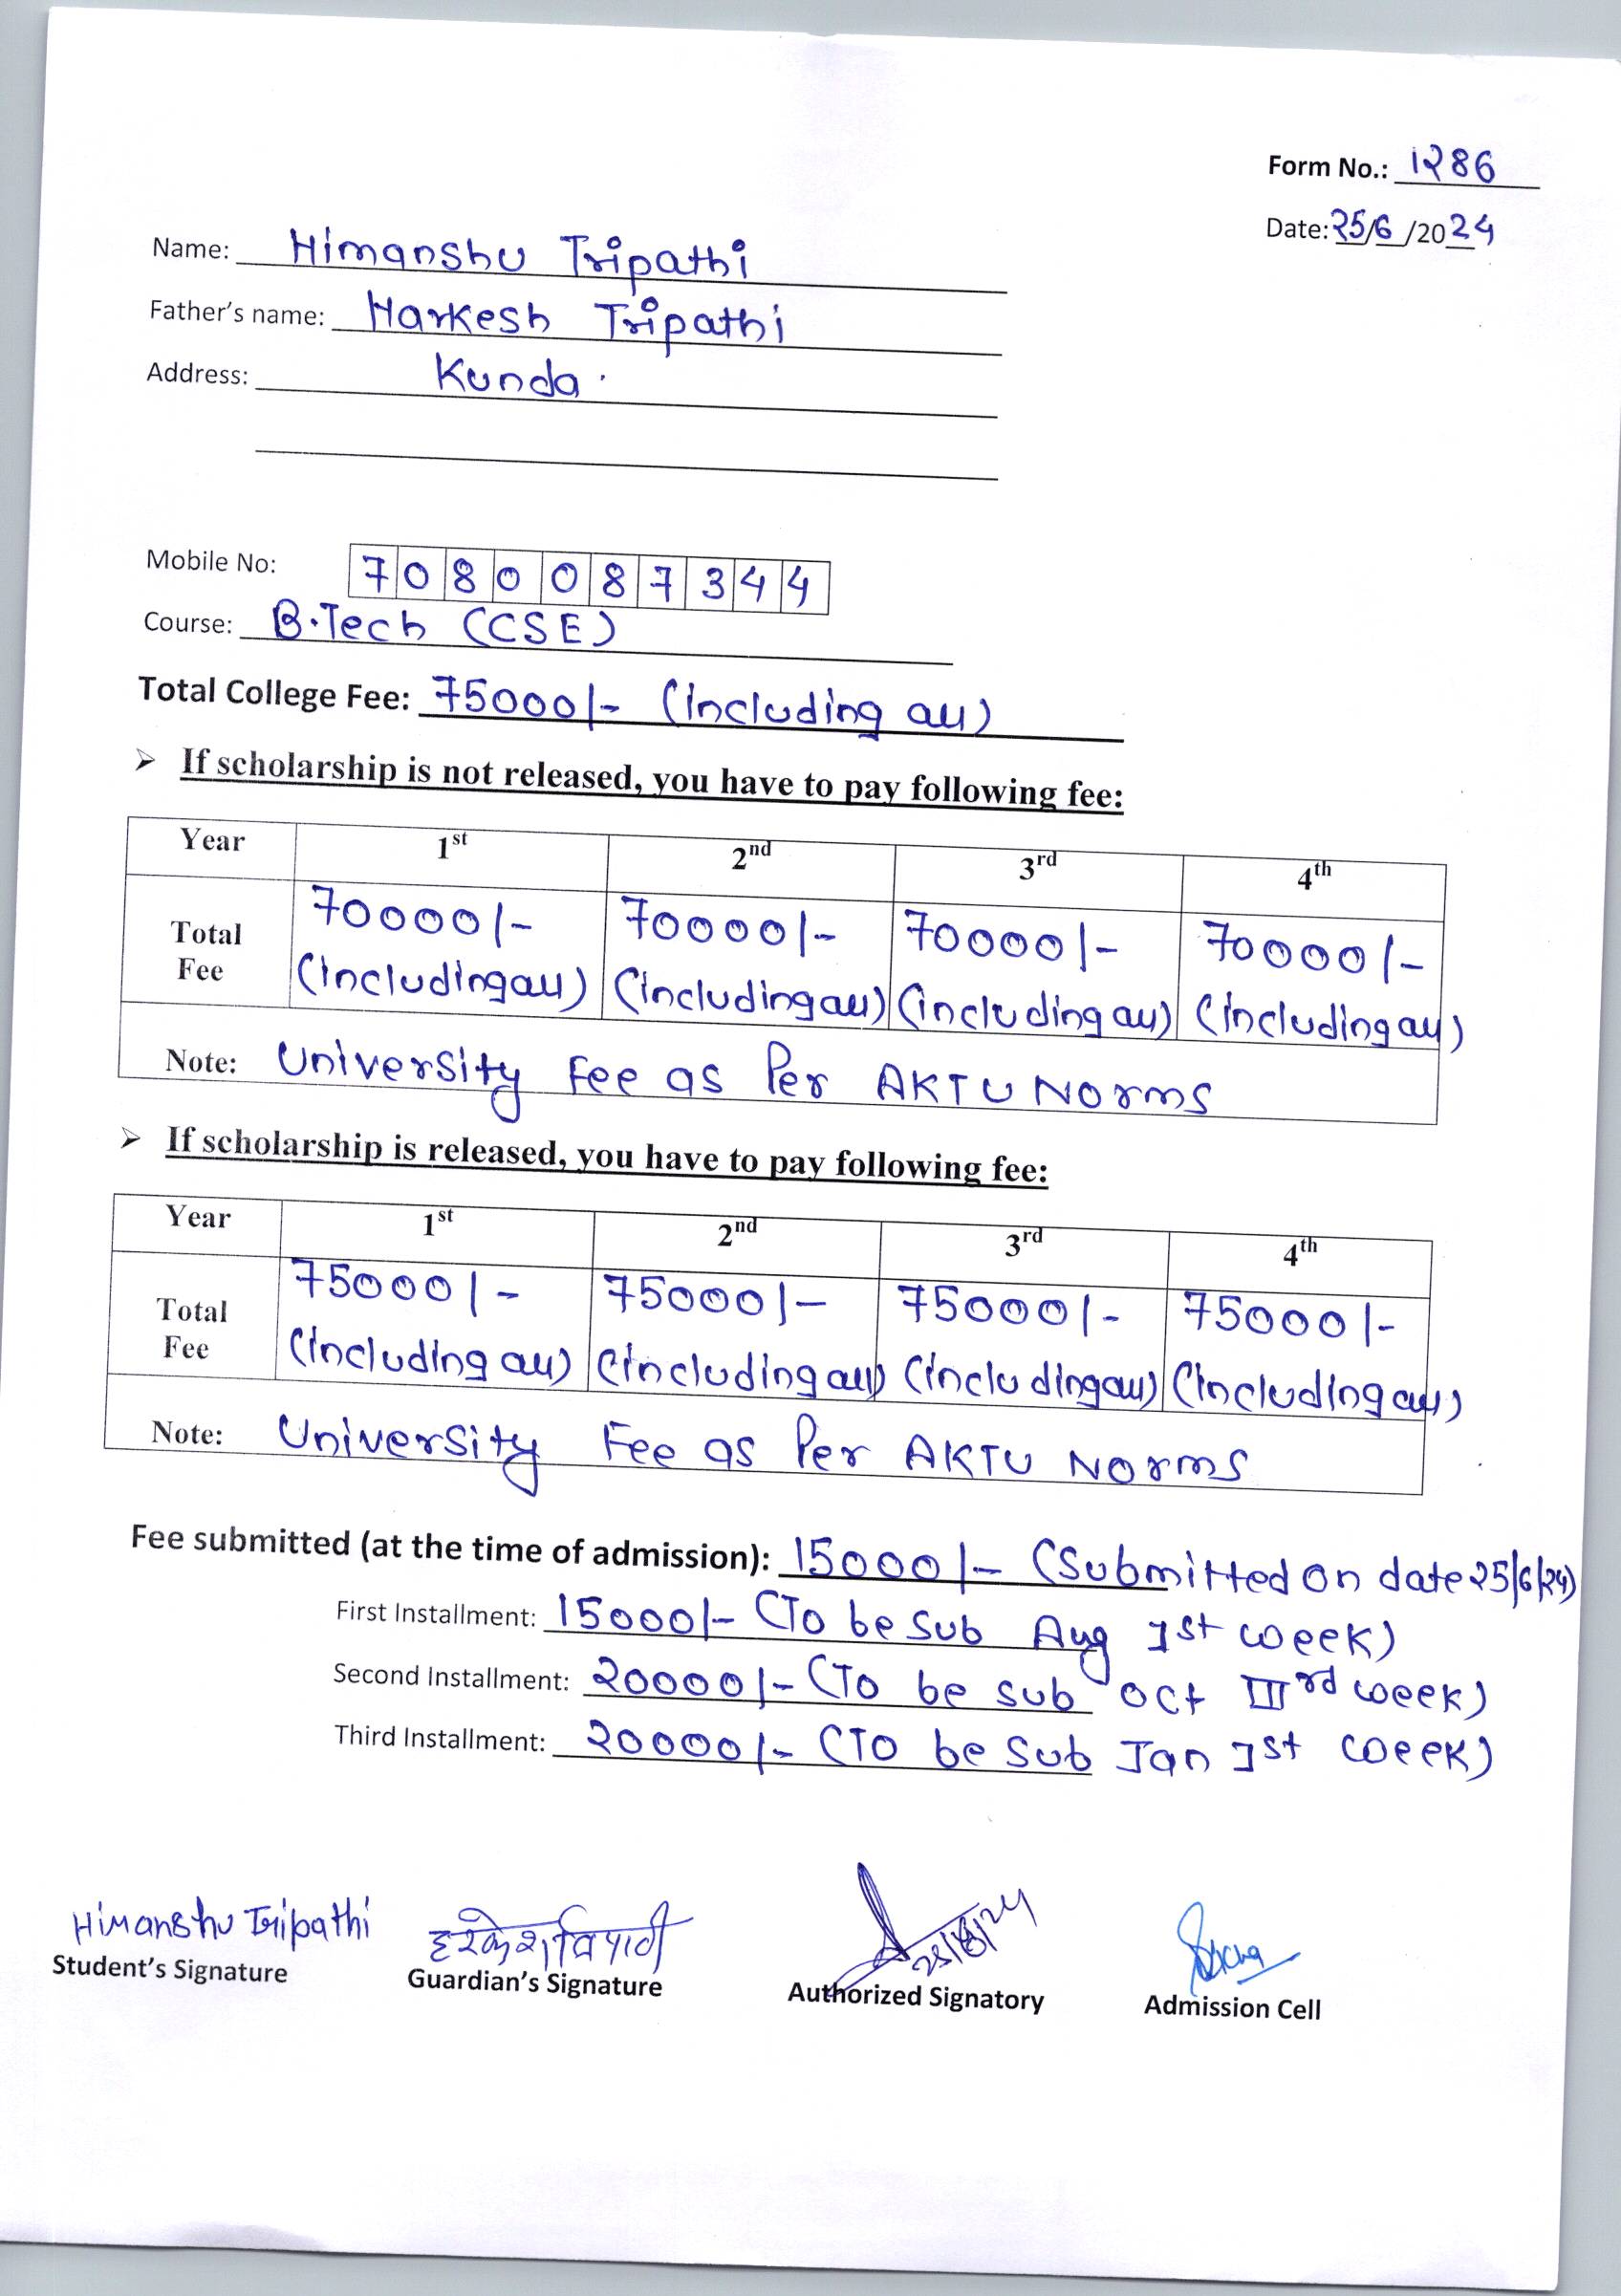 Form No.: 1286
Date: 25/6/2024
Name: Himanshu Tripathi
Father's name: Harkesh Tripathi
Address: Kunda.
Mobile No: 7080087344
Course: B.Tech (CSE)
Total College Fee: 75000/- (Including all)
➤ If scholarship is not released, you have to pay following fee:
Year 1st 2nd 3rd 4th
Total Fee 70000/- (Including all) 70000/- (Including all) 70000/- (including all) 70000/- (Including all)
Note: University Fee as Per AKTU Norms
➤ If scholarship is released, you have to pay following fee:
Year 1st 2nd 3rd 4th
Total Fee 75000/- (Including all) 75000/- (Including all) 75000/- (Including all) 75000/- (Including all)
Note: University Fee as Per AKTU Norms
Fee submitted (at the time of admission): 15000/- (Submitted on date 25/6/24)
First Installment: 15000/- (To be Sub Aug Ist week)
Second Installment: 20000/- (To be sub oct IIIrd week)
Third Installment: 20000/- (To be Sub Jan Ist week)
Himanshu Tripathi
Student's Signature
हरकेश त्रिपाठी
Guardian's Signature
Authorized Signatory
Admission Cell